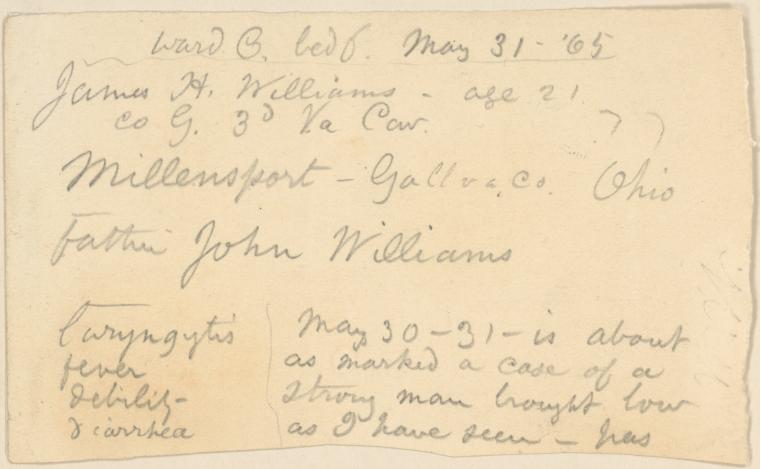 ward C. bed 6. May 31 - '65
James H. Williams - age 21
co G. 3d Va Cav.
Millensport - Gallva, co. Ohio
Father John Williams
laryngytis
fever
debility
diarrhea
May 30-31- is about
as marked a case of a
strong man brought low
as I have seen - has